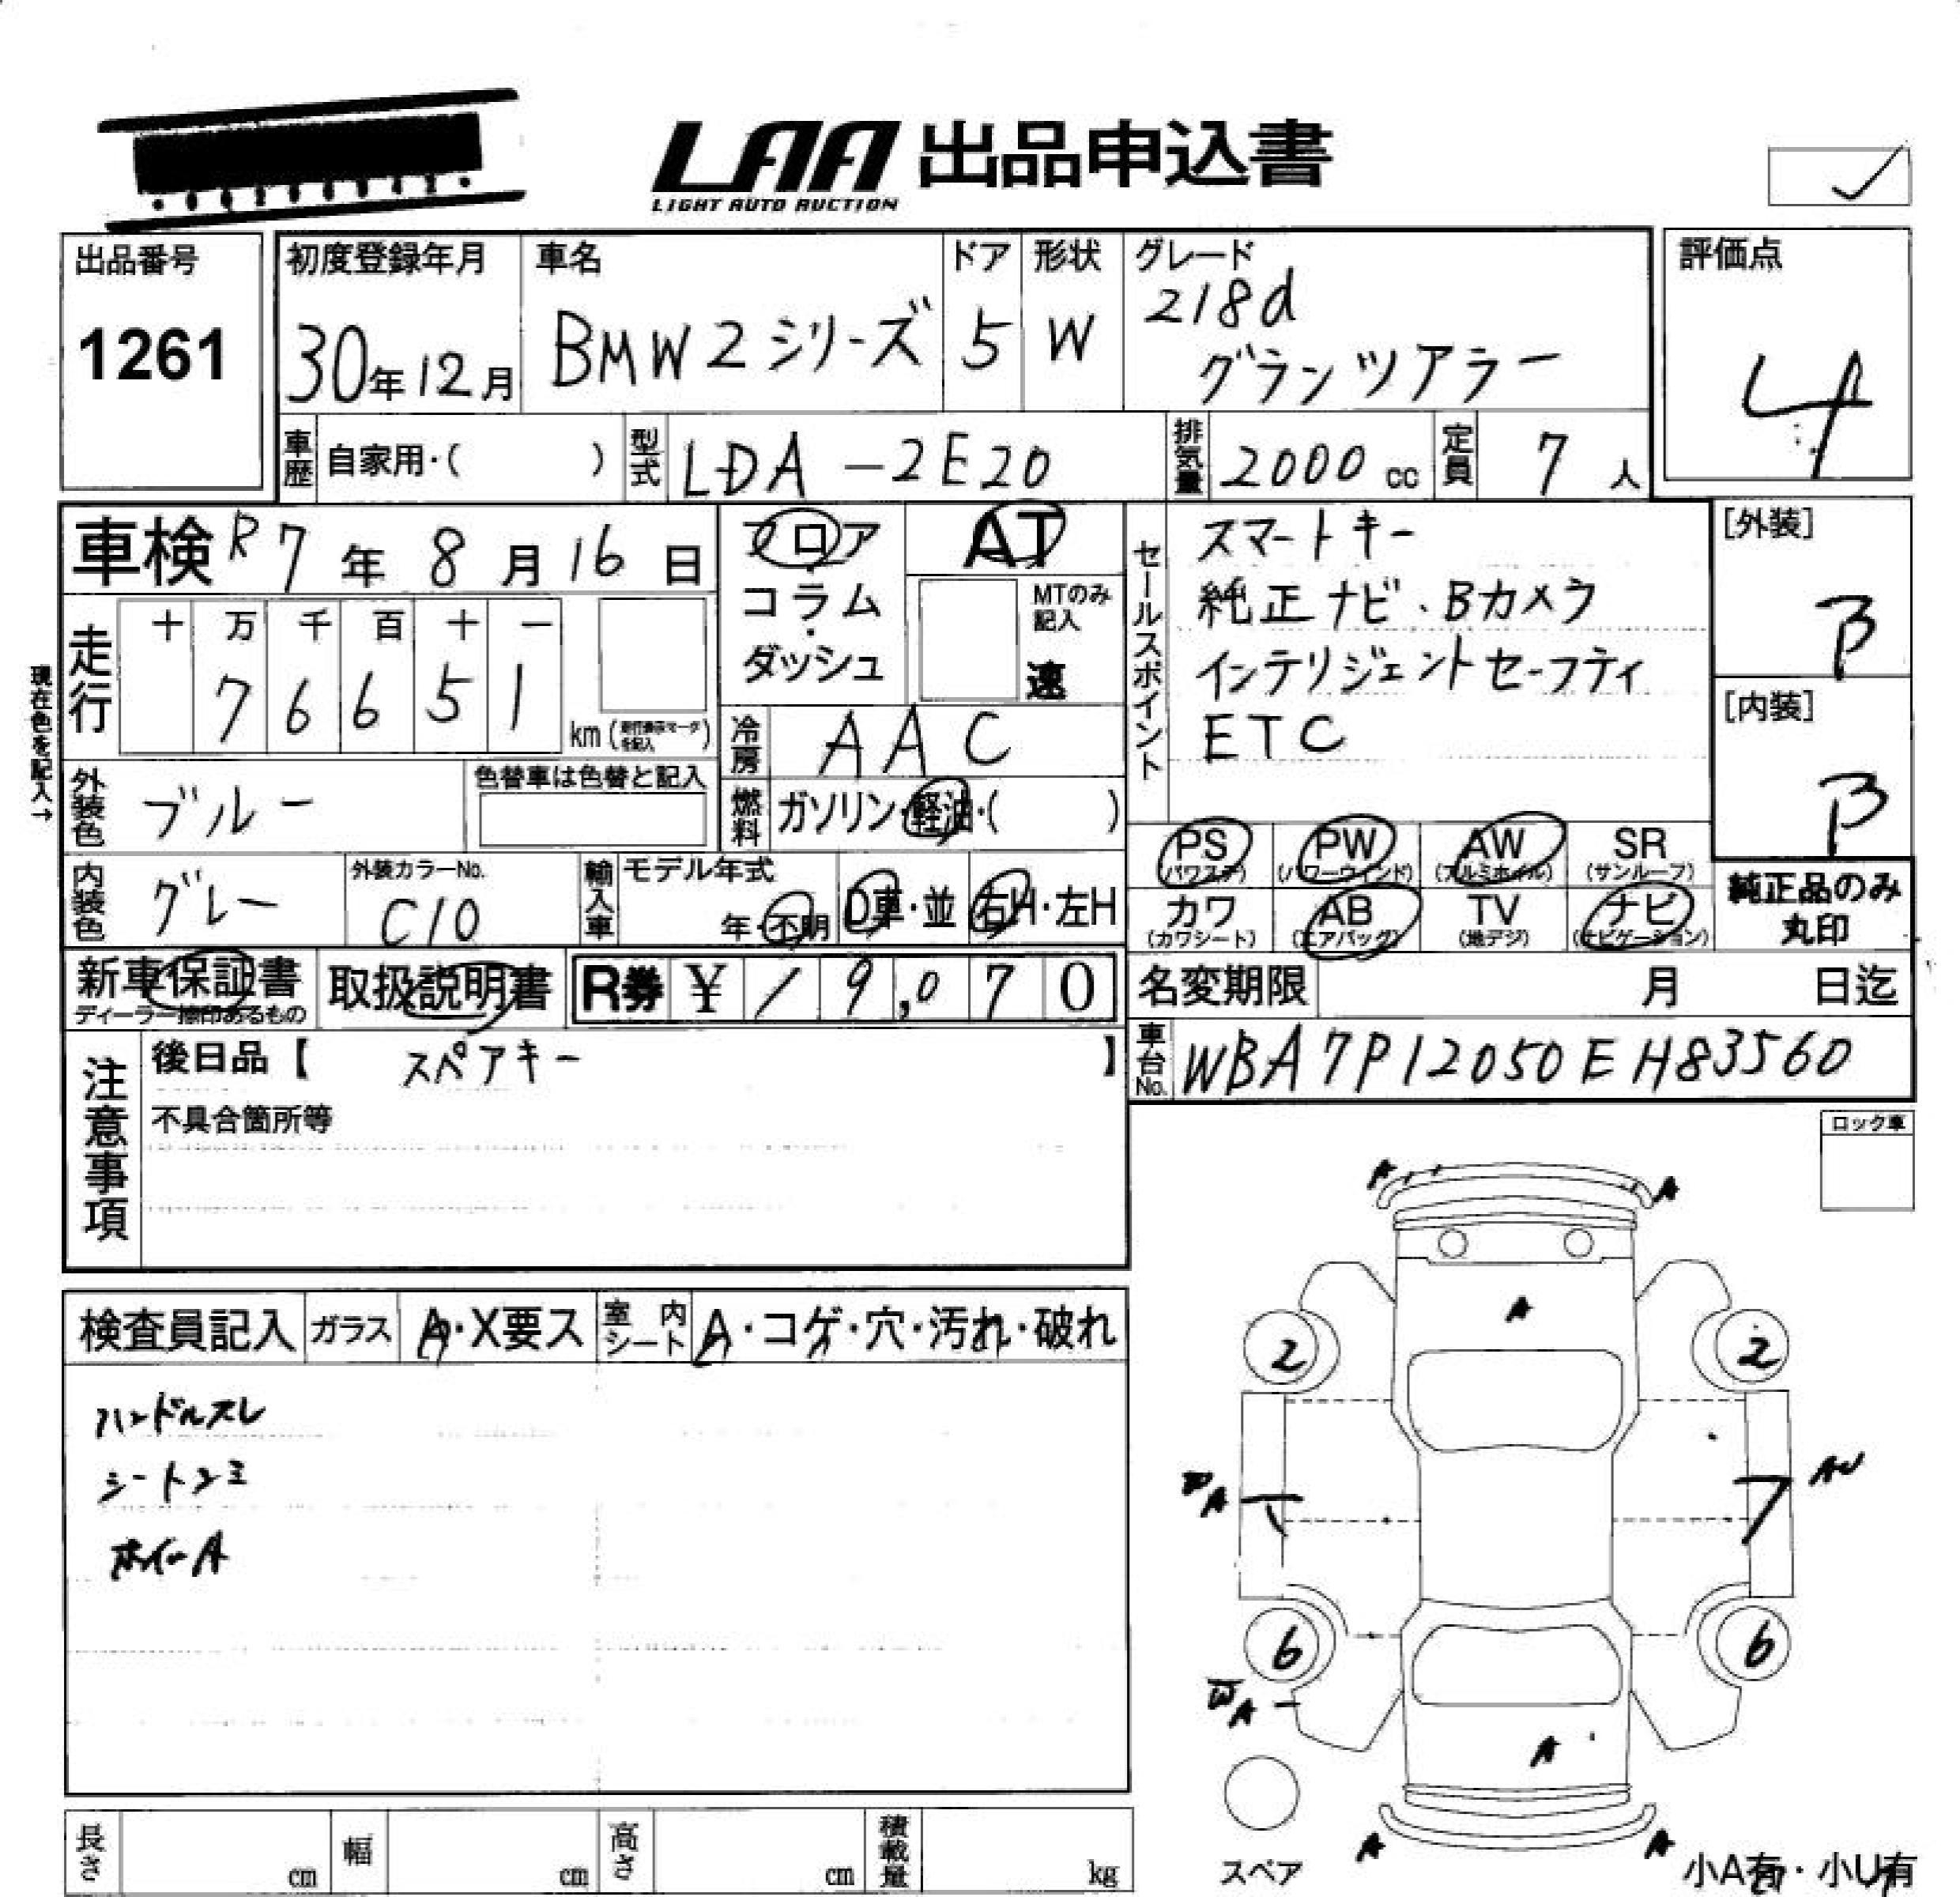 LAA 出品申込書
LIGHT AUTO AUCTION
出品番号
1261
初度登録年月
30年12月
車名
BMW2シリーズ
ドア
5
形状
W
グレード
218d
グランツアラー
評価点
4
車歴 自家用・( )
型式 LDA-2E20
排気量 2000cc
定員 7人
車検 R7年8月16日
フロア
・
コラム
・
ダッシュ
AT
MTのみ
記入
速
走行
十 万 千 百 十 一
7 6 6 5 1
km
現在色を記入→
冷房 AAC
燃料 ガソリン・軽油・( )
外装色 ブルー
色替車は色替と記入
内装色 グレー
外装カラーNo.
C10
輸入車
モデル年式
年・不明
D車・並
右H・左H
セールスポイント
スマートキー
純正ナビ、Bカメラ
インテリジェントセーフティ
ETC
[外装]
B
[内装]
B
PS
(パワステ)
PW
(パワーウィンド)
AW
(アルミホイル)
SR
(サンルーフ)
カワ
(カワシート)
AB
(エアバッグ)
TV
(地デジ)
ナビ
(ナビゲーション)
純正品のみ
丸印
新車保証書
ディーラー捺印あるもの
取扱説明書
R券 ¥ 19,070
名変期限 月 日迄
車台No. WBA7P12050EH83560
注意事項
後日品【 スペアキー 】
不具合箇所等
ロック車
検査員記入
ガラス A・X要ス
室内シート A・コゲ・穴・汚れ・破れ
ハンドルスレ
シートシミ
ホイールA
A
A
A
2
2
A
AU
6
6
A
A
A
A
スペア
小A有・小U有
長さ cm
幅 cm
高さ cm
積載量 kg